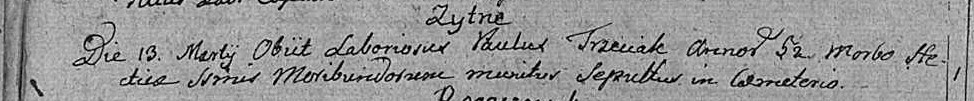 Zytne
Die 13. Martij Obiit Laboriosus Paulus Trzeciak Annor 52 Morbo He-
ctica Ssmis Moribundorum munitus Sepultus in Cœmeterio.